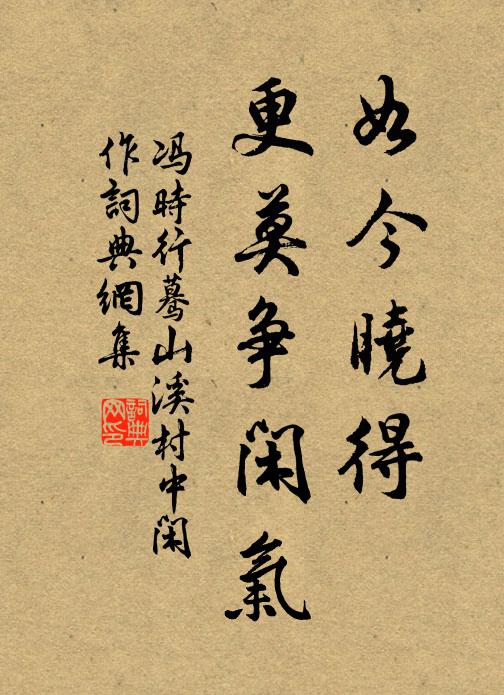 如今曉得
更莫争閑氣
冯時行驀山溪村中閑
作詞典網集
詞典
网印